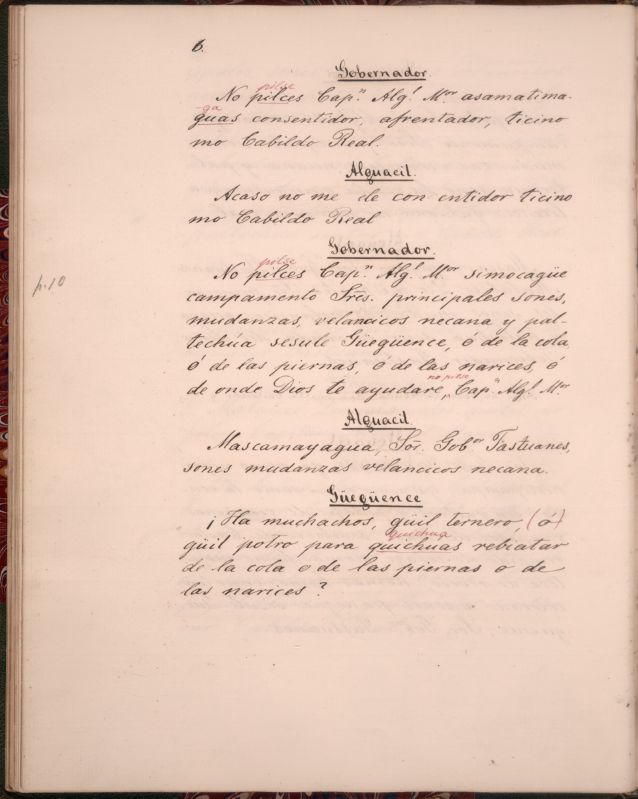 6.
Gobernador.
pilse
No pilces Capn. Algl. Mor. asamatima-
-ga
guas consentidor, afrentador, ticino
mo Cabildo Real.
Alguacil.
Acaso no me de con entidor ticino
mo Cabildo Real
Gobernador.
pilse
No pilces Capn. Algl. Mor. simocagüe
p. 10
campamento Sres. principales sones,
mudanzas, velancicos necana y pal-
techúa sesule Güegüence, ó de la cola
ó de las piernas, ó de las narices, ó
no pilse
de onde Dios te ayudare, Capn. Algl. Mor
Alguacil.
Mascamayagua, Sor. Gobor Tastuanes,
sones mudanzas velancicos necana.
Güegüence
¡Ha muchachos, güil ternero, (ó)
quichua
güil potro para quichuas rebiatar
de la cola o de las piernas o de
las narices?